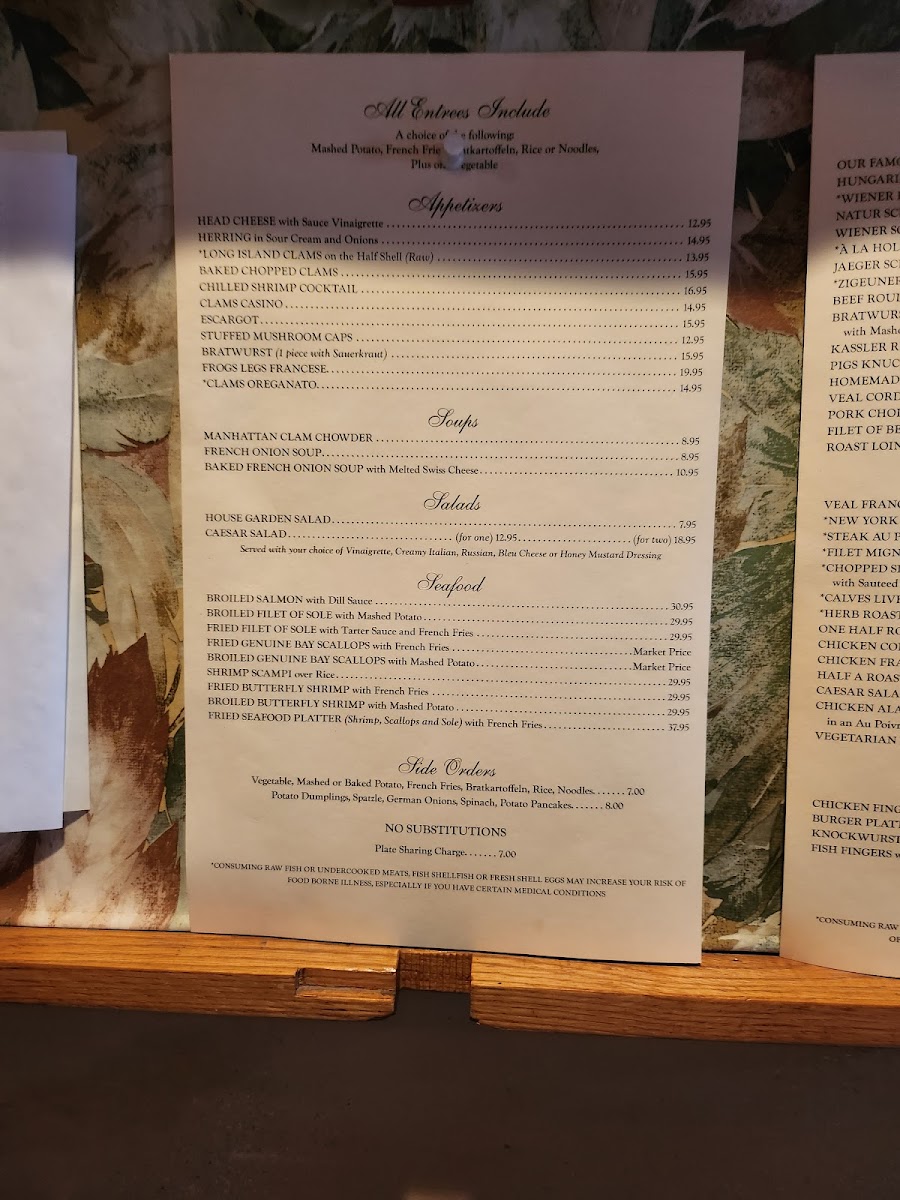 All Entrees Include
A choice of the following:
Mashed Potato, French Fries, Bratkartoffeln, Rice or Noodles,
Plus one Vegetable
Appetizers
HEAD CHEESE with Sauce Vinaigrette 12.95
HERRING in Sour Cream and Onions 14.95
*LONG ISLAND CLAMS on the Half Shell (Raw) 13.95
BAKED CHOPPED CLAMS 15.95
CHILLED SHRIMP COCKTAIL 16.95
CLAMS CASINO 14.95
ESCARGOT 15.95
STUFFED MUSHROOM CAPS 12.95
BRATWURST (1 piece with Sauerkraut) 15.95
FROGS LEGS FRANCESE 19.95
*CLAMS OREGANATO 14.95
Soups
MANHATTAN CLAM CHOWDER 8.95
FRENCH ONION SOUP 8.95
BAKED FRENCH ONION SOUP with Melted Swiss Cheese 10.95
Salads
HOUSE GARDEN SALAD 7.95
CAESAR SALAD (for one) 12.95 (for two) 18.95
Served with your choice of Vinaigrette, Creamy Italian, Russian, Bleu Cheese or Honey Mustard Dressing
Seafood
BROILED SALMON with Dill Sauce 30.95
BROILED FILET OF SOLE with Mashed Potato 29.95
FRIED FILET OF SOLE with Tarter Sauce and French Fries 29.95
FRIED GENUINE BAY SCALLOPS with French Fries Market Price
BROILED GENUINE BAY SCALLOPS with Mashed Potato Market Price
SHRIMP SCAMPI over Rice 29.95
FRIED BUTTERFLY SHRIMP with French Fries 29.95
BROILED BUTTERFLY SHRIMP with Mashed Potato 29.95
FRIED SEAFOOD PLATTER (Shrimp, Scallops and Sole) with French Fries 37.95
Side Orders
Vegetable, Mashed or Baked Potato, French Fries, Bratkartoffeln, Rice, Noodles 7.00
Potato Dumplings, Spatzle, German Onions, Spinach, Potato Pancakes 8.00
NO SUBSTITUTIONS
Plate Sharing Charge 7.00
*CONSUMING RAW FISH OR UNDERCOOKED MEATS, FISH SHELLFISH OR FRESH SHELL EGGS MAY INCREASE YOUR RISK OF
FOOD BORNE ILLNESS, ESPECIALLY IF YOU HAVE CERTAIN MEDICAL CONDITIONS
OUR FAMO
HUNGARI
*WIENER
NATUR SC
WIENER SC
*À LA HOL
JAEGER SC
*ZIGEUNER
BEEF ROUL
BRATWURS
with Mashe
KASSLER R
PIGS KNUC
HOMEMAD
VEAL CORD
PORK CHOP
FILET OF BE
ROAST LOIN
VEAL FRANC
*NEW YORK
*STEAK AU P
*FILET MIGN
*CHOPPED SI
with Sauteed
*CALVES LIVE
*HERB ROAST
ONE HALF RO
CHICKEN CO
CHICKEN FRA
HALF A ROAS
CAESAR SALA
CHICKEN ALA
in an Au Poivr
VEGETARIAN
CHICKEN FING
BURGER PLATT
KNOCKWURST
FISH FINGERS w
*CONSUMING RAW
OF